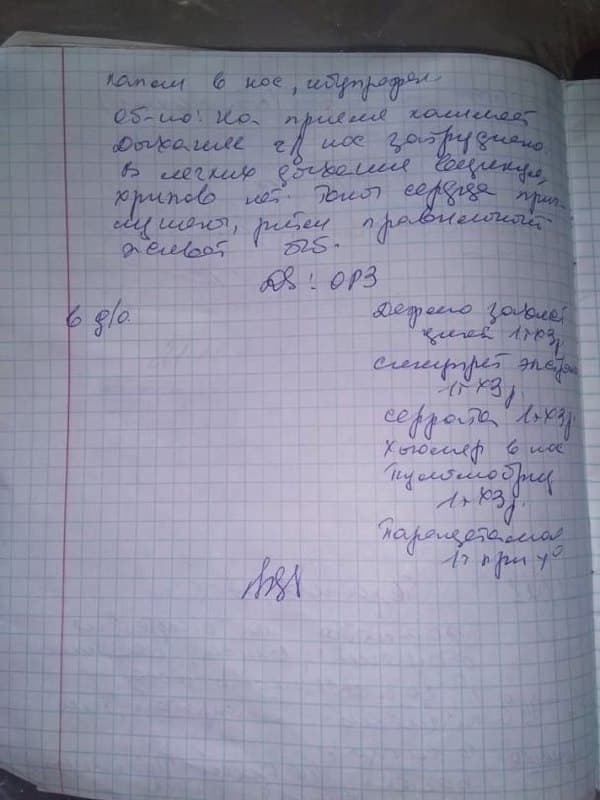 капали в нос, ибупрофен.
Об-но: На приеме кашляет
Дыхание ч/з нос затруднено
В легких дыхание везикул,
хрипов нет. Тоны сердца при-
глушены, ритм правильный
живот б/б.
DS: ОРЗ
6 д/о.
1т х 3 р.
синупрет экстра
1т х 3 р.
серрата 1т х 3 р.
Хьюмер в нос
Пульмобриз
1т х 3 р.
Парацетамол
1т при t°